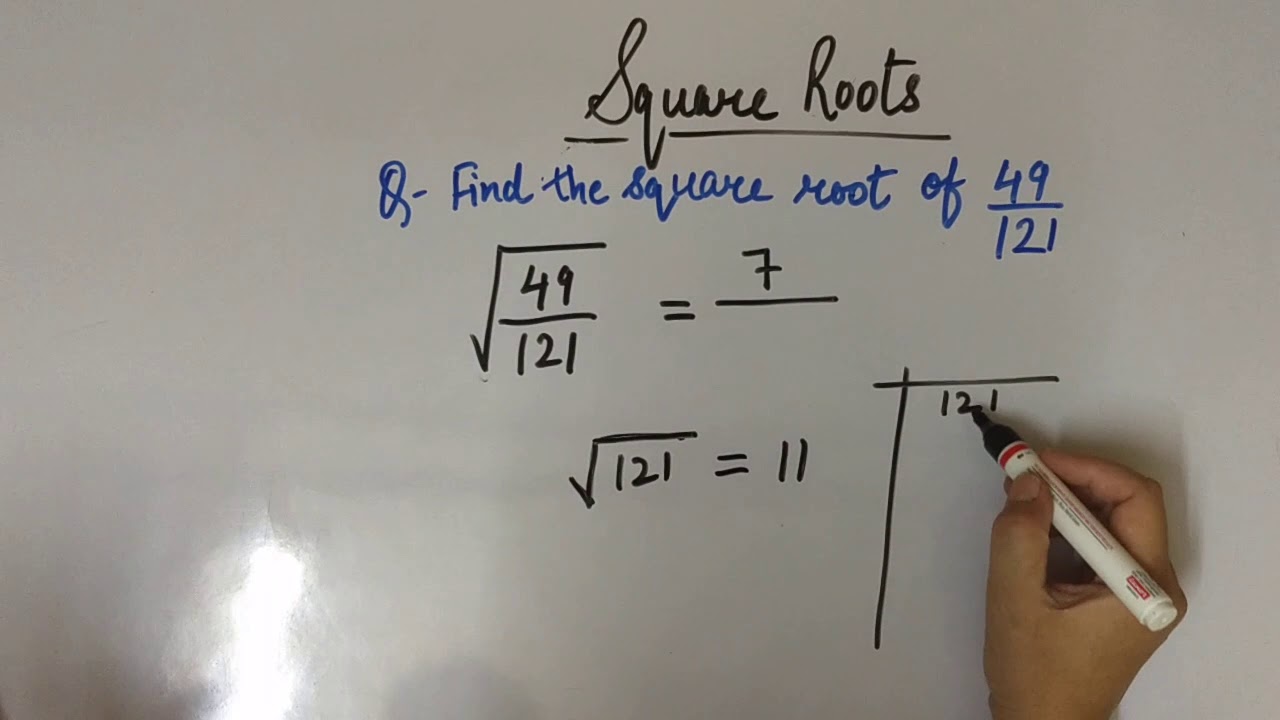 Square Roots
Q- Find the square root of 49/121
√49/121 = 7/
121
√121 = 11